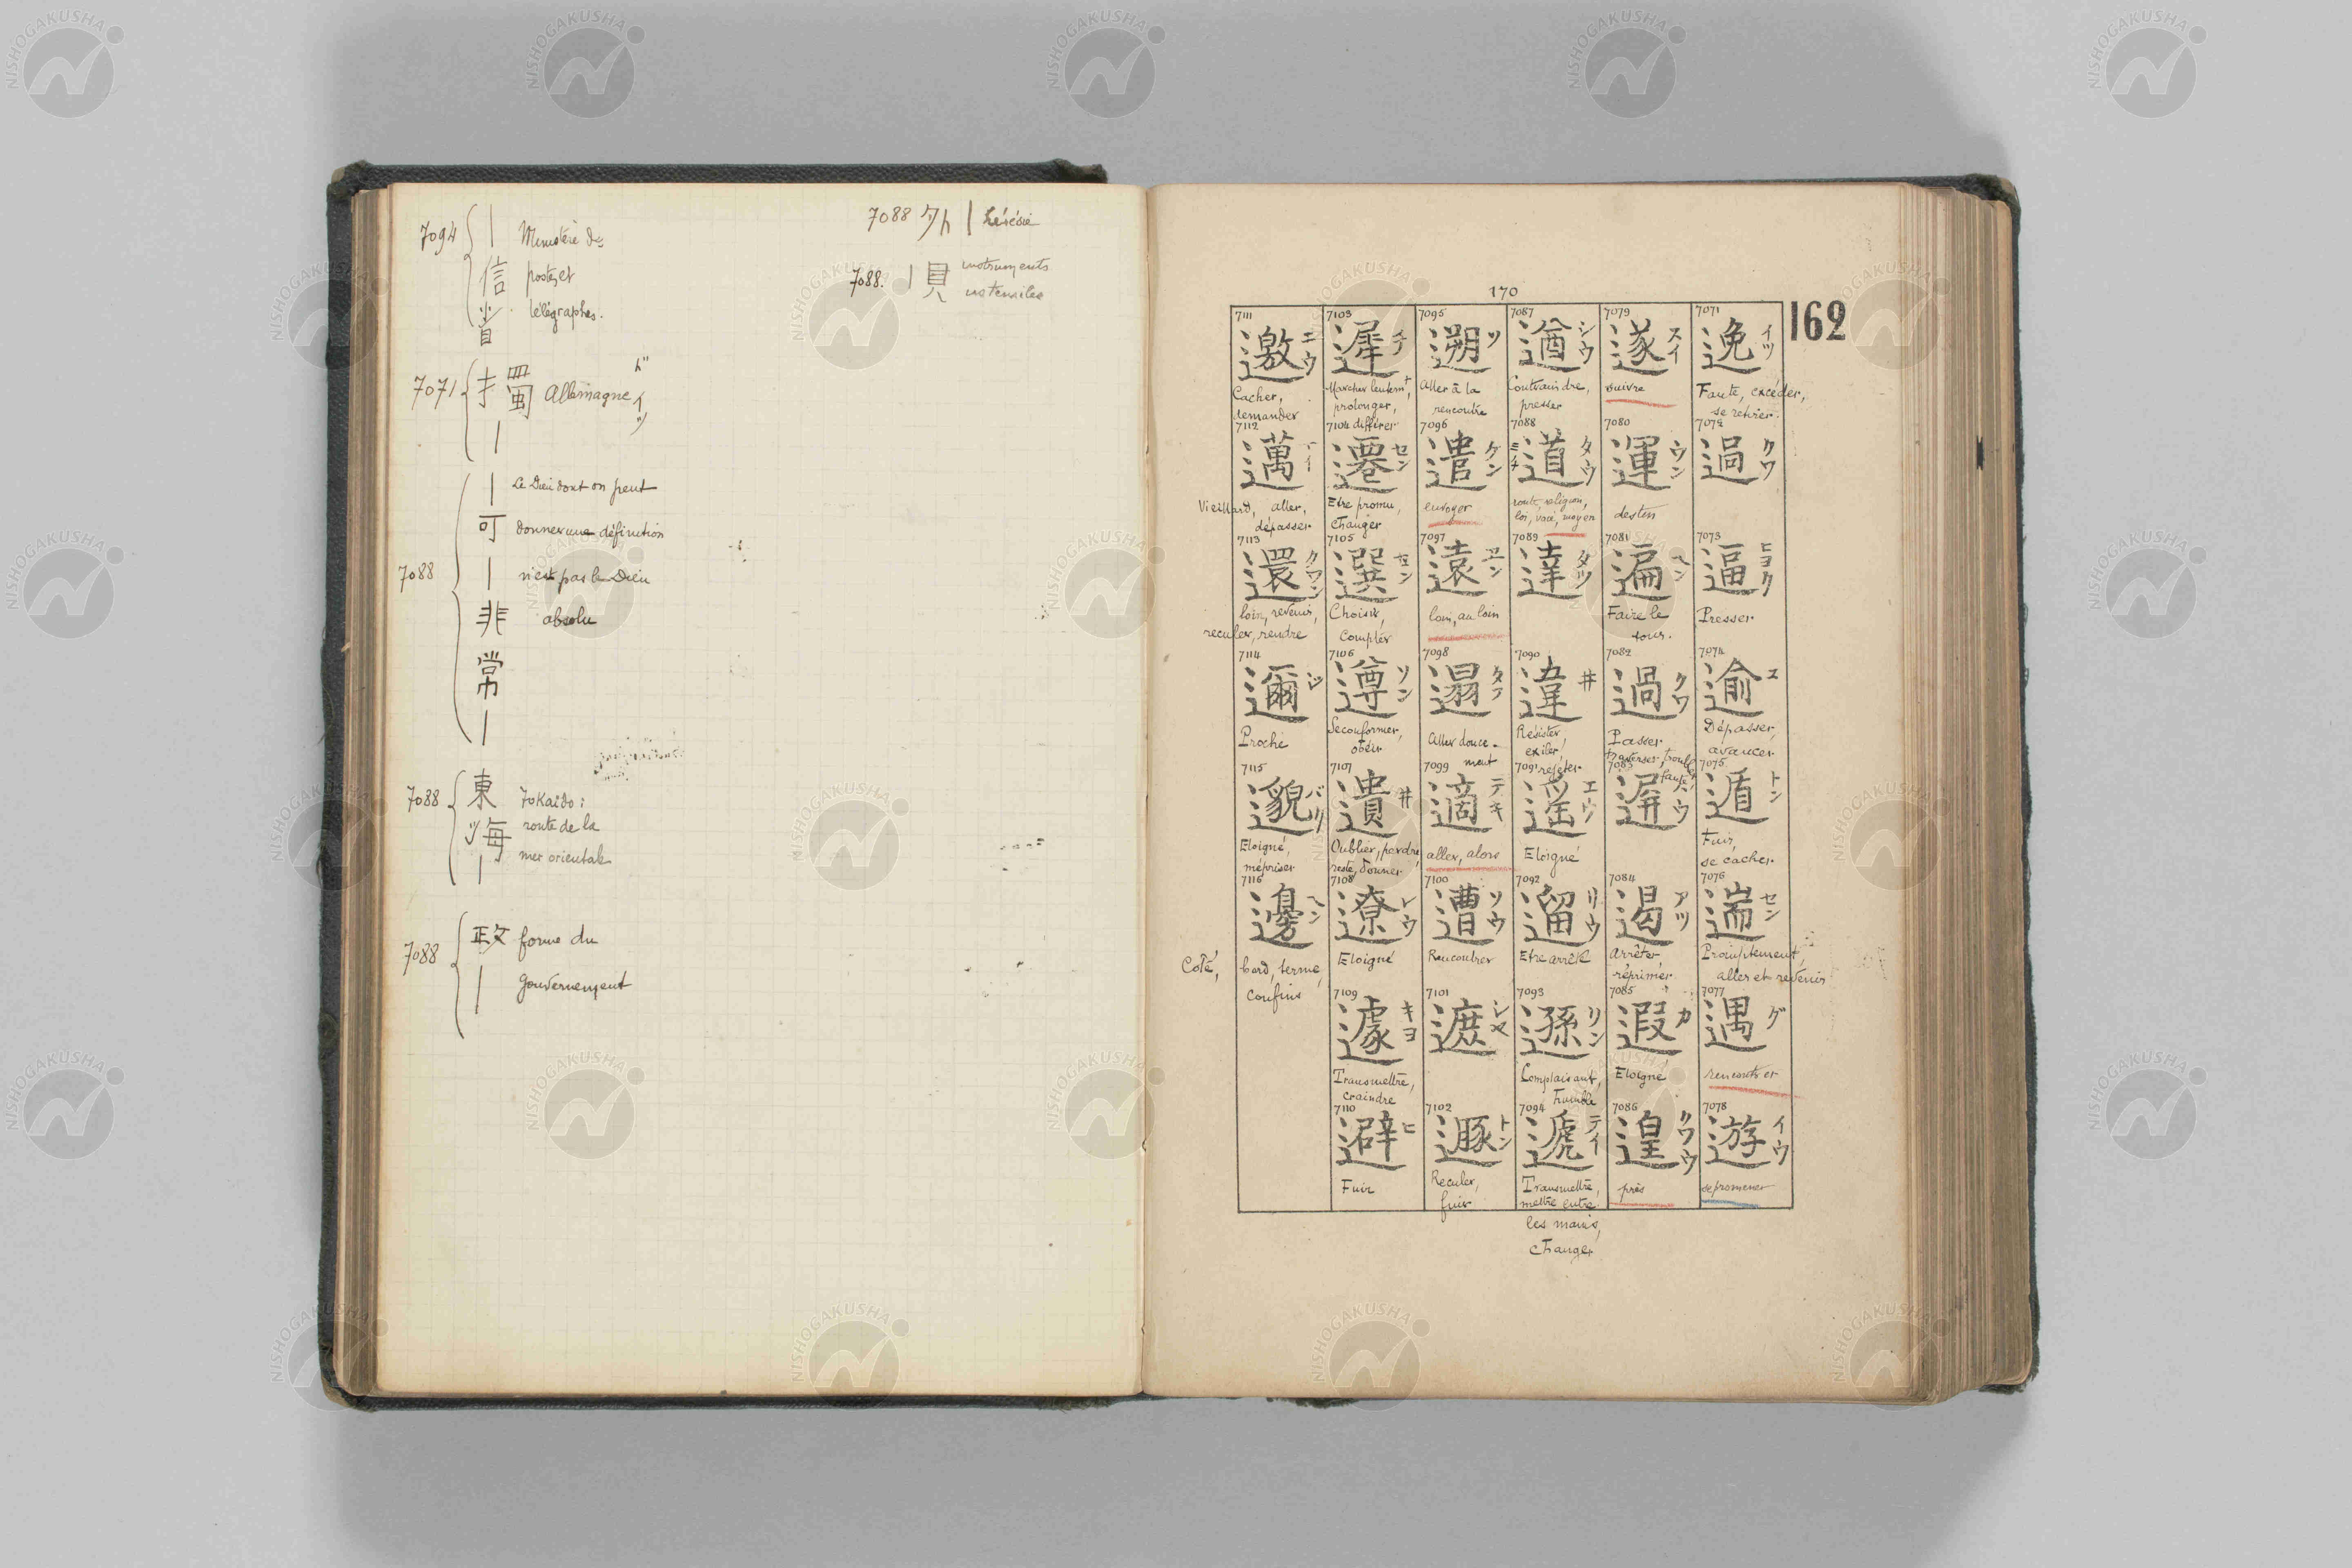 7094 | Ministère des
信 postes et
省 télégraphes.
7071 Allemagne ドイツ
|
7088
| Le Dieu dont on peut
可 donner une définition
| n'est pas le Dieu
非 absolu
常
|
7088 東 Tokaido :
海 route de la
| mer orientale
7088 政 forme du
| gouvernement
7088 外 | hérésie
7088. | 具 instruments
ustensiles
170
162
7071 逸 イツ
Faute, excéder,
se retirer.
7072 過 クワ
7073 逼 ヒヨク
Presser
7074 逾 ユ
Dépasser,
avancer
7075 遁 トン
Fuir,
se cacher
7076 遄 セン
Promptement,
aller et revenir
7077 遇 グ
rencontrer
7078 遊 イウ
se promener
7079 遂 スイ
suivre
7080 運 ウン
destin
7081 遍 ヘン
Faire le
tour.
7082 過 クワ
Passer
traverser,
faute
7083
7084 遏 アツ
Arrêter,
réprimer
7085 遐 カ
Eloigné
7086 遑 クワウ
près
7087 遒 シウ
Contraindre,
presser
7088 道 タウ ミチ
route, religion,
loi, voie, moyen
7089 達 タツ
7090 違 井
Résister,
exiler,
rejeter
7091 遥 エウ
Eloigné
7092 遛 リウ
Etre arrêté
7093 遜
Complaisant,
humble
7094 遞 テイ
Transmettre,
mettre entre
les mains,
changer
7095 遡 ソ
Aller à la
rencontre
7096 遣 ケン
envoyer
7097 遠 ヱン
loin, au loin
7098 遢 タフ
Aller douce-
ment
7099 適 テキ
aller, alors
7100 遭 ソウ
Rencontrer
7101 遮 シヤ
7102 遯 トン
Reculer,
fuir
7103 遲 チ
Marcher lentemt,
prolonger,
différer
7104 遷 セン
Etre promu,
changer
7105 選 セン
Choisir,
compter
7106 遵 ソン
Se conformer,
obéir
7107 遺 井
Oublier, perdre,
reste, donner
7108 遼 レウ
Eloigné
7109 遽 キヨ
Transmettre,
craindre
7110 避 ヒ
Fuir
7111 邀 エウ
Cacher,
demander
7112 邁
Vieillard, aller,
dépasser
7113 還 クワン
loin, revenir,
reculer, rendre
7114 邇 ジ
Proche
7115 邈 バク
Eloigné,
mépriser
7116 邊 ヘン
Coté, bord, terme,
confins